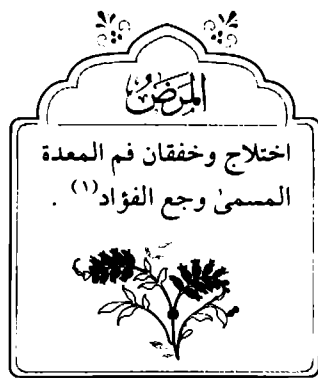 المَرَضُ
اختلاج وخفقان فم المعدة
المسمىٰ وجع الفؤاد(١) .